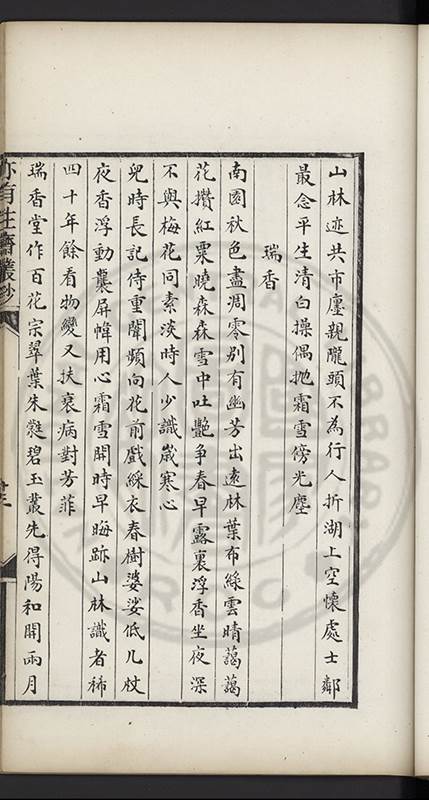 山林迹共市廛親隴頭不為行人折湖上空懷處士鄰
最念平生清白操偶拋霜雪傍光塵
瑞香
南園秋色盡凋零別有幽芳出遠林葉布綠雲晴藹藹
花攢紅粟曉森森雪中吐艷爭春早露裏浮香坐夜深
不與梅花同素淡時人少識歲寒心
兒時長記侍重闈頻向花前戲綵衣春樹婆娑低几杖
夜香浮動褰屏幃用心霜雪開時早晦跡山林識者稀
四十年餘看物變又扶衰病對芳菲
瑞香堂作百花宗翠葉朱蕤碧玉叢先得陽和開兩月
亦有生齋叢鈔